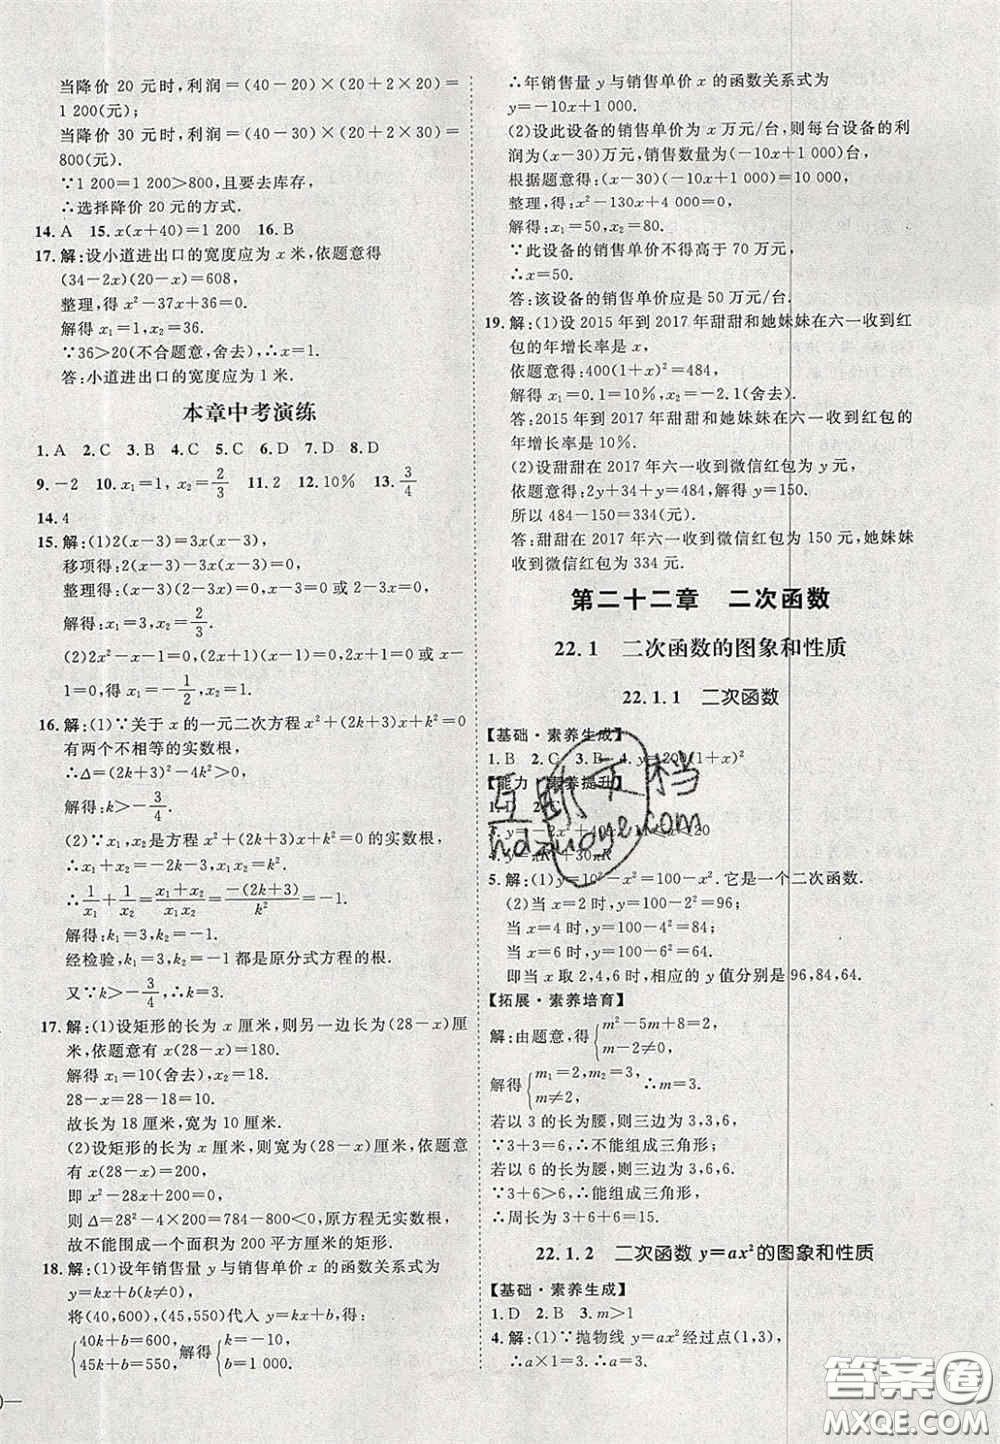 当降价 20 元时,利润=(40-20)×(20+2×20)=
1 200(元);
当降价 30 元时,利润=(40-30)×(20+2×30)=
800(元).
∵1 200=1 200>800,且要去库存,
∴选择降价 20 元的方式.
14.A 15.x(x+40)=1 200 16.B
17.解:设小道进出口的宽度应为 x 米,依题意得
(34-2x)(20-x)=608,
整理,得 x²-37x+36=0.
解得 x₁=1,x₂=36.
∵36>20(不合题意,舍去),∴x=1.
答:小道进出口的宽度应为 1 米.
本章中考演练
1.A 2.C 3.B 4.C 5.C 6.D 7.D 8.D
9.-2 10.x₁=1, x₂=2/3 11.2 12.10% 13.3/4
14.4
15.解:(1)2(x-3)=3x(x-3),
移项得:2(x-3)-3x(x-3)=0,
整理得:(x-3)(2-3x)=0,x-3=0 或 2-3x=0,
解得:x₁=3,x₂=2/3.
(2)2x²-x-1=0,(2x+1)(x-1)=0,2x+1=0 或 x-
1=0,解得 x₁=-1/2,x₂=1.
16.解:(1)∵关于 x 的一元二次方程 x²+(2k+3)x+k²=0
有两个不相等的实数根,
∴Δ=(2k+3)²-4k²>0,
解得:k>-3/4.
(2)∵x₁,x₂是方程 x²+(2k+3)x+k²=0 的实数根,
∴x₁+x₂=-2k-3,x₁x₂=k²,
∴1/x₁+1/x₂=(x₁+x₂)/(x₁x₂)=-(2k+3)/k²=-1,
解得:k₁=3,k₂=-1.
经检验,k₁=3,k₂=-1 都是原分式方程的根.
又∵k>-3/4,∴k=3.
17.解:(1)设矩形的长为 x 厘米,则另一边长为(28-x)厘
米,依题意有 x(28-x)=180.
解得 x₁=10(舍去),x₂=18.
28-x=28-18=10.
故长为 18 厘米,宽为 10 厘米.
(2)设矩形的长为 x 厘米,则宽为(28-x)厘米,依题意
有 x(28-x)=200,
即 x²-28x+200=0,
则 Δ=28²-4×200=784-800<0,原方程无实数根,
故不能围成一个面积为 200 平方厘米的矩形.
18.解:(1)设年销售量 y 与销售单价 x 的函数关系式为
y=kx+b(k≠0),
将(40,600),(45,550)代入 y=kx+b,得
{40k+b=600, 45k+b=550, 解得{k=-10, b=1 000.
∴年销售量 y 与销售单价 x 的函数关系式为
y=-10x+1 000.
(2)设此设备的销售单价为 x 万元/台,则每台设备的利
润为(x-30)万元,销售数量为(-10x+1 000)台,
根据题意得:(x-30)(-10x+1 000)=10 000,
整理,得:x²-130x+4 000=0,
解得:x₁=50,x₂=80.
∵此设备的销售单价不得高于 70 万元,
∴x=50.
答:该设备的销售单价应是 50 万元/台.
19.解:(1)设 2015 年到 2017 年甜甜和她妹妹在六一收到红
包的年增长率是 x,
依题意得:400(1+x)²=484,
解得 x₁=0.1=10%,x₂=-2.1(舍去).
答:2015 年到 2017 年甜甜和她妹妹在六一收到红包的
年增长率是 10%.
(2)设甜甜在 2017 年六一收到微信红包为 y 元,
依题意得:2y+34+y=484,解得 y=150.
所以 484-150=334(元).
答:甜甜在 2017 年六一收到微信红包为 150 元,她妹妹
收到微信红包为 334 元.
第二十二章 二次函数
22.1 二次函数的图象和性质
22.1.1 二次函数
【基础·素养生成】
1.B 2.C 3.B 4.y=200(1+x)²
【能力·素养提升】
5.解:(1)y=10²-x²=100-x².它是一个二次函数.
(2)当 x=2 时,y=100-2²=96;
当 x=4 时,y=100-4²=84;
当 x=6 时,y=100-6²=64.
即当 x 取 2,4,6 时,相应的 y 值分别是 96,84,64.
【拓展·素养培育】
解:由题意,得{m²-5m+8=2, m-2≠0,
解得{m₁=2,m₂=3, m≠2, ∴m=3.
若以 3 的长为腰,则三边为 3,3,6.
∵3+3=6,∴不能组成三角形;
若以 6 的长为腰,则三边为 3,6,6.
∵3+6>6,∴能组成三角形,
∴周长为 3+6+6=15.
22.1.2 二次函数 y=ax²的图象和性质
【基础·素养生成】
1.D 2.B 3.m>1
4.解:(1)∵抛物线 y=ax²经过点(1,3),
∴a×1=3,∴a=3.
互助文档
hdzuoye.com
答案圈
MXQE.COM